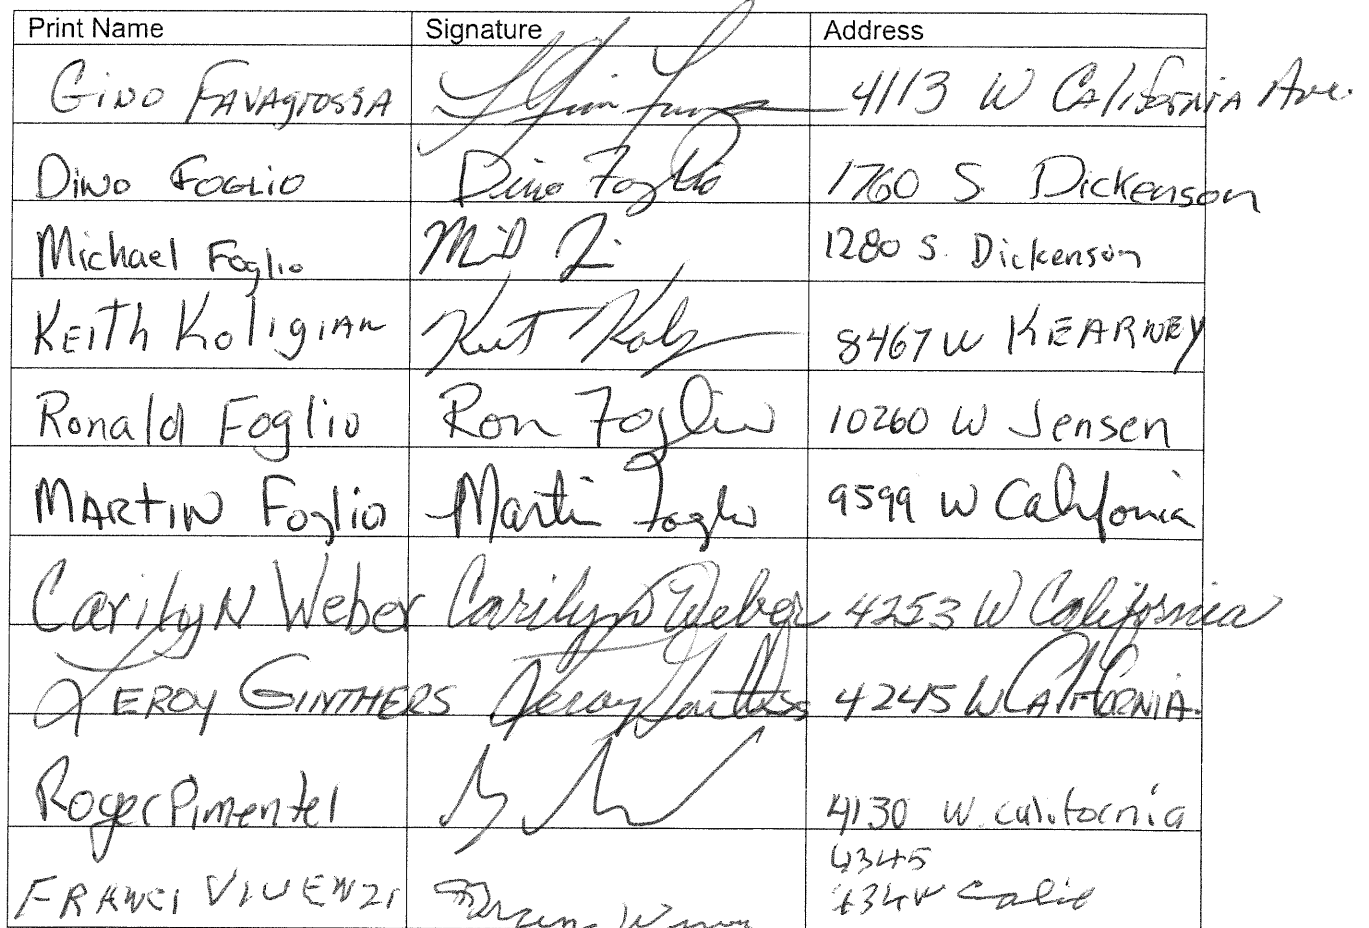 Print Name Signature Address
Gino FAVAgrossA 4113 W CAlifornia Ave.
Dino Foglio Dino Foglio 1760 S. Dickenson
Michael Foglio 1280 S. Dickenson
KEith Koligian 8467 W KEARNEY
Ronald Foglio Ron Foglio 10260 W Jensen
MARTIN Foglio Martin Foglio 9599 W California
Carilyn Weber Carilyn Weber 4253 W California
LEROY GINTHERS Leroy 4245 W CALIFORNIA.
Roger Pimentel 4130 W. california
4345
FRANCI VIVENZI Calif